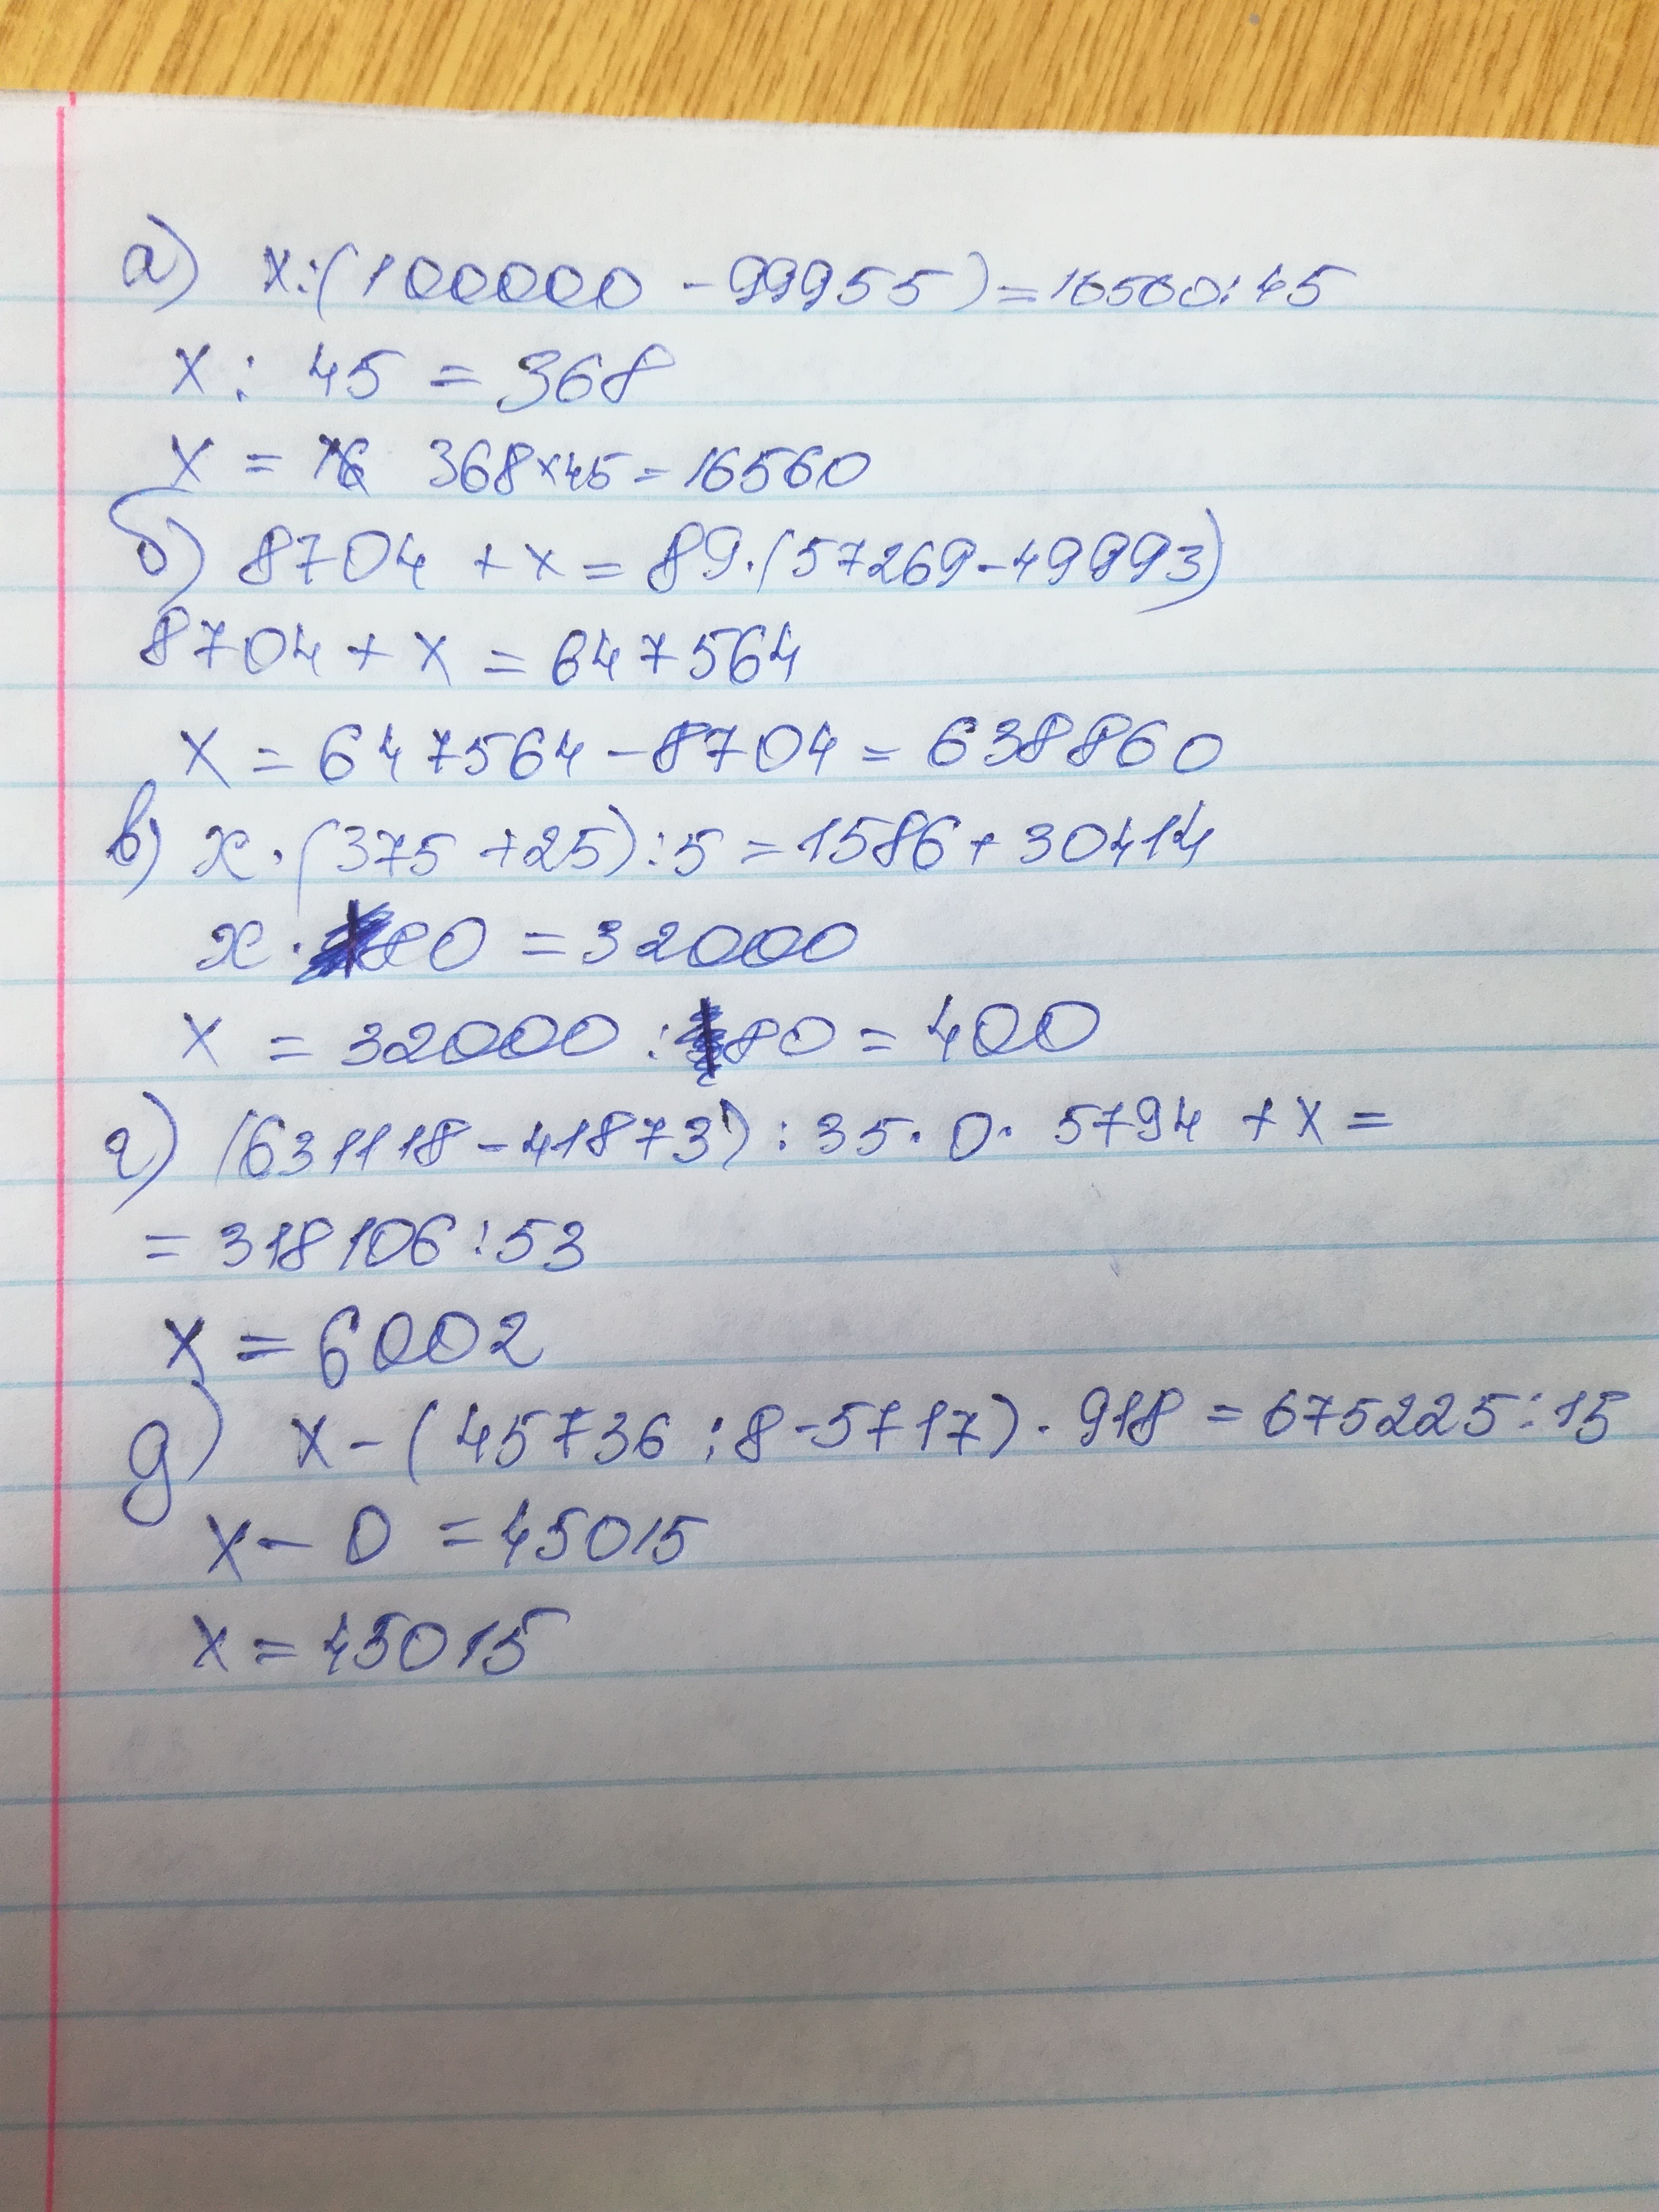 а) x:(100000 - 99955) = 16560:45
x : 45 = 368
x = 368×45 = 16560
б) 8704 + x = 89·(57269-49993)
8704 + x = 647564
x = 647564 - 8704 = 638860
в) x·(375 + 25):5 = 1586 + 30414
x · 80 = 32000
x = 32000 : 80 = 400
г) (631118 - 41873) : 35 · 0 · 5794 + x =
= 318106 : 53
x = 6002
д) x - (45736 : 8 - 5717) · 918 = 675225 : 15
x - 0 = 45015
x = 45015